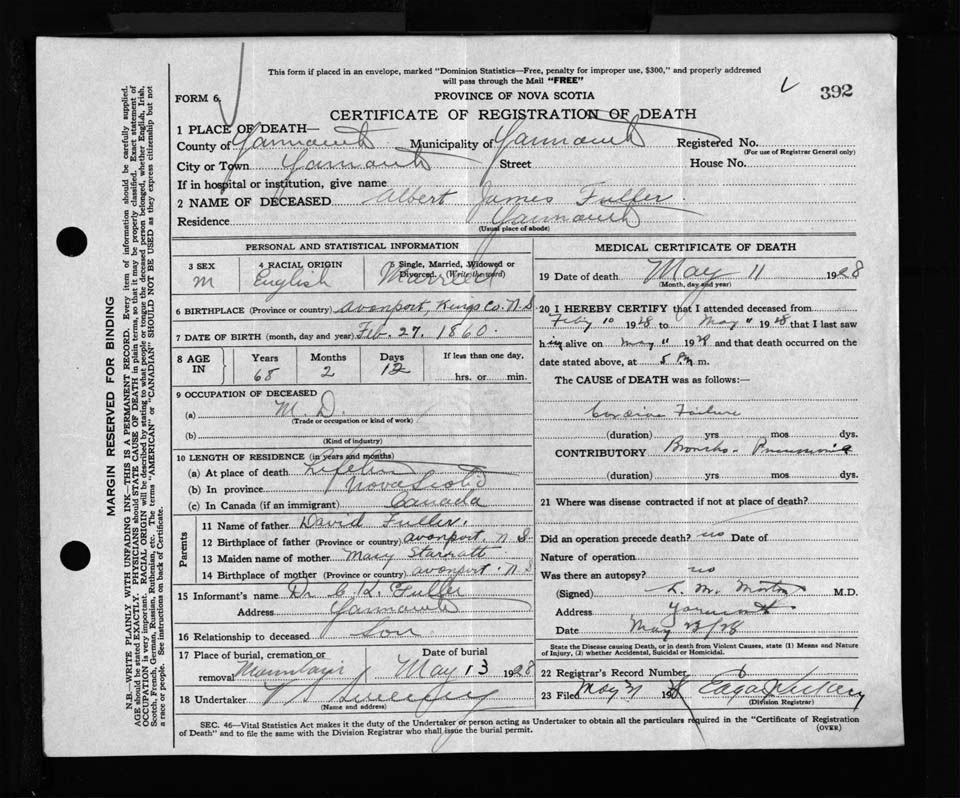 This form if placed in an envelope, marked "Dominion Statistics—Free, penalty for improper use, $300," and properly addressed
will pass through the Mail "FREE"
392
FORM 6.
PROVINCE OF NOVA SCOTIA
CERTIFICATE OF REGISTRATION OF DEATH
1 PLACE OF DEATH—
County of Yarmouth Municipality of Yarmouth Registered No.
(For use of Registrar General only)
City or Town Yarmouth Street House No.
If in hospital or institution, give name
2 NAME OF DECEASED Albert James Fuller
Residence Yarmouth
(Usual place of abode)
PERSONAL AND STATISTICAL INFORMATION
3 SEX 4 RACIAL ORIGIN 5 Single, Married, Widowed or
Divorced. (Write the word)
M English Married
6 BIRTHPLACE (Province or country) Avonport, Kings Co. N.S
7 DATE OF BIRTH (month, day and year) Feb. 27. 1860.
8 AGE IN Years Months Days If less than one day,
68 2 12 hrs. or min.
9 OCCUPATION OF DECEASED
(a) M. D.
(Trade or occupation or kind of work)
(b)
(Kind of industry)
10 LENGTH OF RESIDENCE (in years and months)
(a) At place of death Lifetime
(b) In province Nova Scotia
(c) In Canada (if an immigrant) Canada
Parents
11 Name of father David Fuller.
12 Birthplace of father (Province or country) Avonport. N.S.
13 Maiden name of mother Mary Starratt
14 Birthplace of mother (Province or country) Avonport. N.S
15 Informant's name Dr C. K. Fuller
Address Yarmouth
16 Relationship to deceased Son
17 Place of burial, cremation or Date of burial
removal Mountain May 13 1928
18 Undertaker V S Sweeney
(Name and address)
MEDICAL CERTIFICATE OF DEATH
19 Date of death May 11 1928
(Month, day and year)
20 I HEREBY CERTIFY that I attended deceased from
Feby 10 1928 to May 11 1928 that I last saw
him alive on May 11 1928 and that death occurred on
the date stated above, at 5 P.M. m.
The CAUSE OF DEATH was as follows:—
Cardiac Failure
(duration) yrs mos dys.
CONTRIBUTORY Broncho-Pneumonia
(duration) yrs. mos dys.
21 Where was disease contracted if not at place of death?
Did an operation precede death? no Date of
Nature of operation
Was there an autopsy? no
(Signed) L. M. Morton M.D.
Address Yarmouth
Date May 23/28
State the Disease causing Death, or in death from Violent Causes, state (1) Means and Nature
of Injury, (2) whether Accidental, Suicidal or Homicidal.
22 Registrar's Record Number 6
23 Filed May 31 1928
(Division Registrar)
SEC. 46—Vital Statistics Act makes it the duty of the Undertaker or person acting as Undertaker to obtain all the particulars required in the "Certificate of Registration
of Death" and to file the same with the Division Registrar who shall issue the burial permit.
(OVER)
MARGIN RESERVED FOR BINDING
N.B.—WRITE PLAINLY WITH UNFADING INK—THIS IS A PERMANENT RECORD. Every item of information should be carefully supplied.
AGE should be stated EXACTLY. PHYSICIANS should STATE CAUSE OF DEATH in plain terms, so that it may be properly classified. Exact statement of
OCCUPATION is very important. RACIAL ORIGIN will be described by stating to what people or tongue the deceased person belonged, whether English, Irish,
Scotch, French, German, Russian, Ruthenian, etc. The terms "AMERICAN" or "CANADIAN" SHOULD NOT BE USED as they express citizenship but not
a race or people. See instructions on back of Certificate.